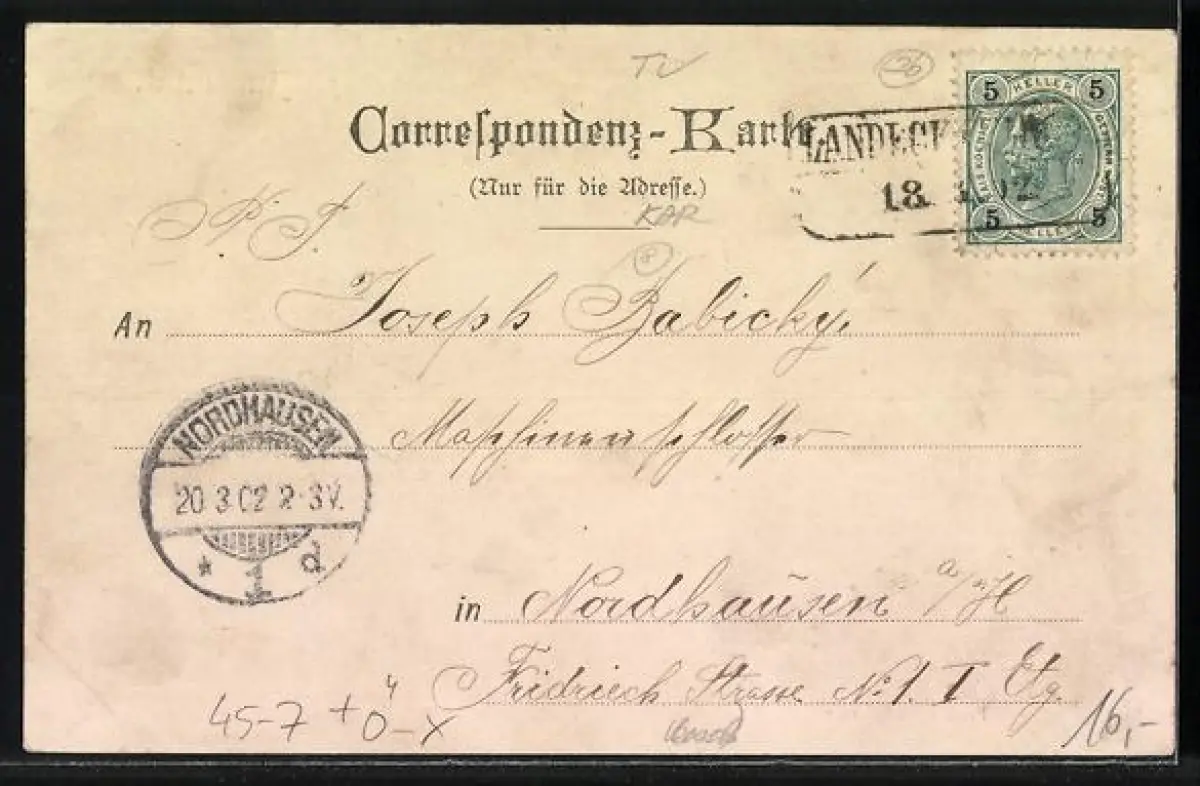 TV
26
Correspondenz-Karte
(Nur für die Adresse.)
LANDECK
18. 02
5 HELLER 5
5 HELLER 5
KAR
P. T.
An Joseph Babický,
Maschinenschlosser
NORDHAUSEN
20 3 02 2-3V.
* 1 d
in Nordhausen a/H
Fridriech Strasse No. 1. I Etg.
45-7 + 4
0-x
16,-